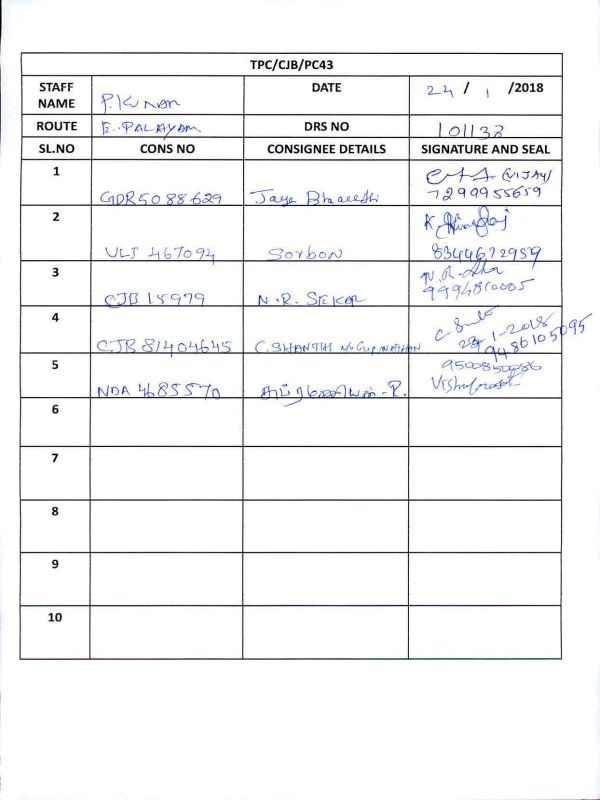 TPC/CJB/PC43
STAFF NAME P.KUMAR DATE 24 / 1 /2018
ROUTE E. PALAYAM DRS NO 101138
SL.NO CONS NO CONSIGNEE DETAILS SIGNATURE AND SEAL
1 GDR5088629 Jaya (VIJAY)
7299955659
2 VLI 467094 Sorbon K.
8344672959
3 CJB 15979 N.R. SEKAR N.R.
9994810005
4 CJB 81404645 C.SHANTHI
1-2018
9486105095
5 NDA 4685570 சுப்ரமணியன்-R. 9500850086
6
7
8
9
10